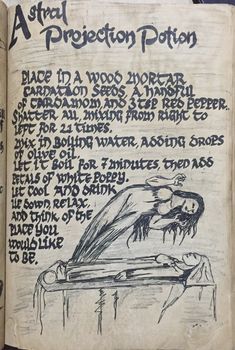 Astral
Projection Potion
Place in a wood mortar
carnation seeds, a handful
of cardamom and 3 tsp red pepper.
Shatter all, mixing from right to
left for 21 times.
Mix in boiling water, adding drops
of olive oil.
Let it boil for 7 minutes then add
petals of white poppy.
Let cool and drink
lie down, relax,
and think of the
place you
would like
to be.